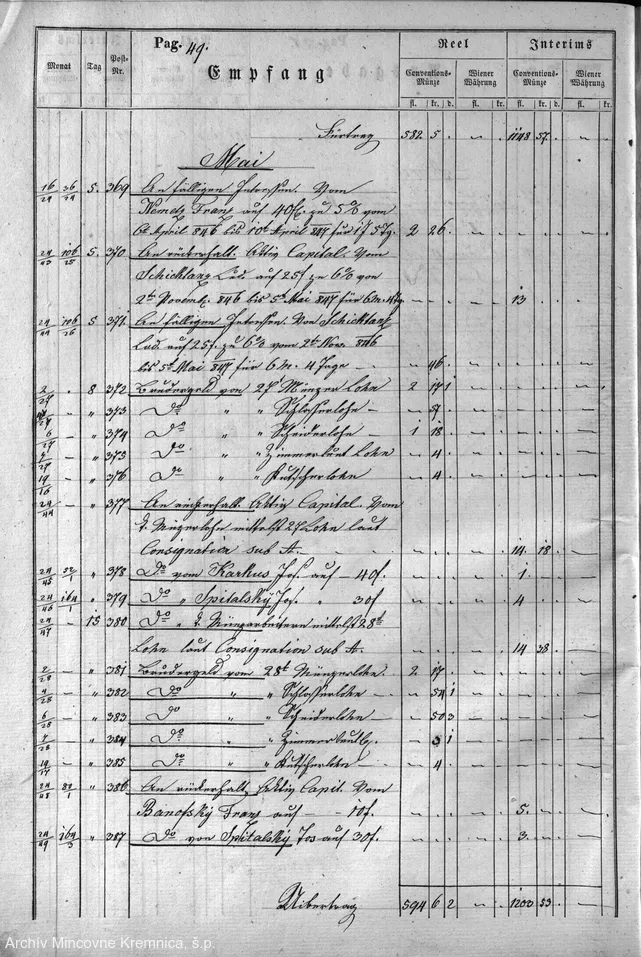 Pag. 49.
Empfang
Reel
Interims
Monat Tag Post-Nr.
Conventions-Münze Wiener Währung Conventions-Münze Wiener Währung
fl. kr. d. fl. kr. fl. kr. d. fl. kr.
Fürtrag 582 5 1148 57
Mai
16/24 36/14 5. 369 An fälligen Interessen. Vom
Nemetz Franz auf 40f. zu 5% vom
6t April 846 bis 10t April 847 für 1J 5Tg. 2 26
24/43 106/25 5. 370 An rükerhalt. Aktiv Capital. Vom
Schicktanz Lud. auf 25f zu 6% von
2tn Novemb. 846 bis 5t Mai 847 für 6 M. 4 Tg 13
24/44 106/26 5 371. An fälligen Interessen. Von Schicktanz
Lud. auf 25f. zu 6% vom 2tn Nov. 846
bis 5t Mai 847 für 6 M. 4 Tage 46
2/27 8 372 Brudergeld von 27t Münzer Lohn 2 17 1
27 " 373 Do " " Schlosserlohn 57
6/27 " 374 Do " " Schniderlohn 1 18
7/27 " 375 Do " " Zimmerleut Lohn 4
19/16 " 376 Do " " Kutscherlohn 4
24/44 " 377 An rükerhalt. Aktiv Capital. Vom
k. Münzerlohn mittelst 27 Lohn laut
Consignation sub A. 14 18
24/45 52/1 " 378 Do vom Karkus Jos. auf 40f. 1
24/46 164/1 " 379 Do " Spitalský Jos. " 30f 4
24/47 15 380 Do " k. Münzarbeitern mittelst 28t
Lohn laut Consignation sub A. 14 38
2/28 " 381 Brudergeld vom 28t Münzerlohn 2 17
4/28 " 382 Do " " Schlosserlohn 54 1
6/28 " 383 Do " " Schniderlohn 50 3
7/28 " 384 Do " " Zimmerleutl. 3 1
19/17 " 385 Do " " Kutscherlohn 4
24/48 82/1 " 386 An rükerhalt. Aktiv Capit. Vom
Banofský Franz auf 10f. 5
24/49 164/3 " 387 Do von Spitalský Jos auf 30f. 3
Uibertrag 594 6 2 1200 53
Archív Mincovne Kremnica, š.p.